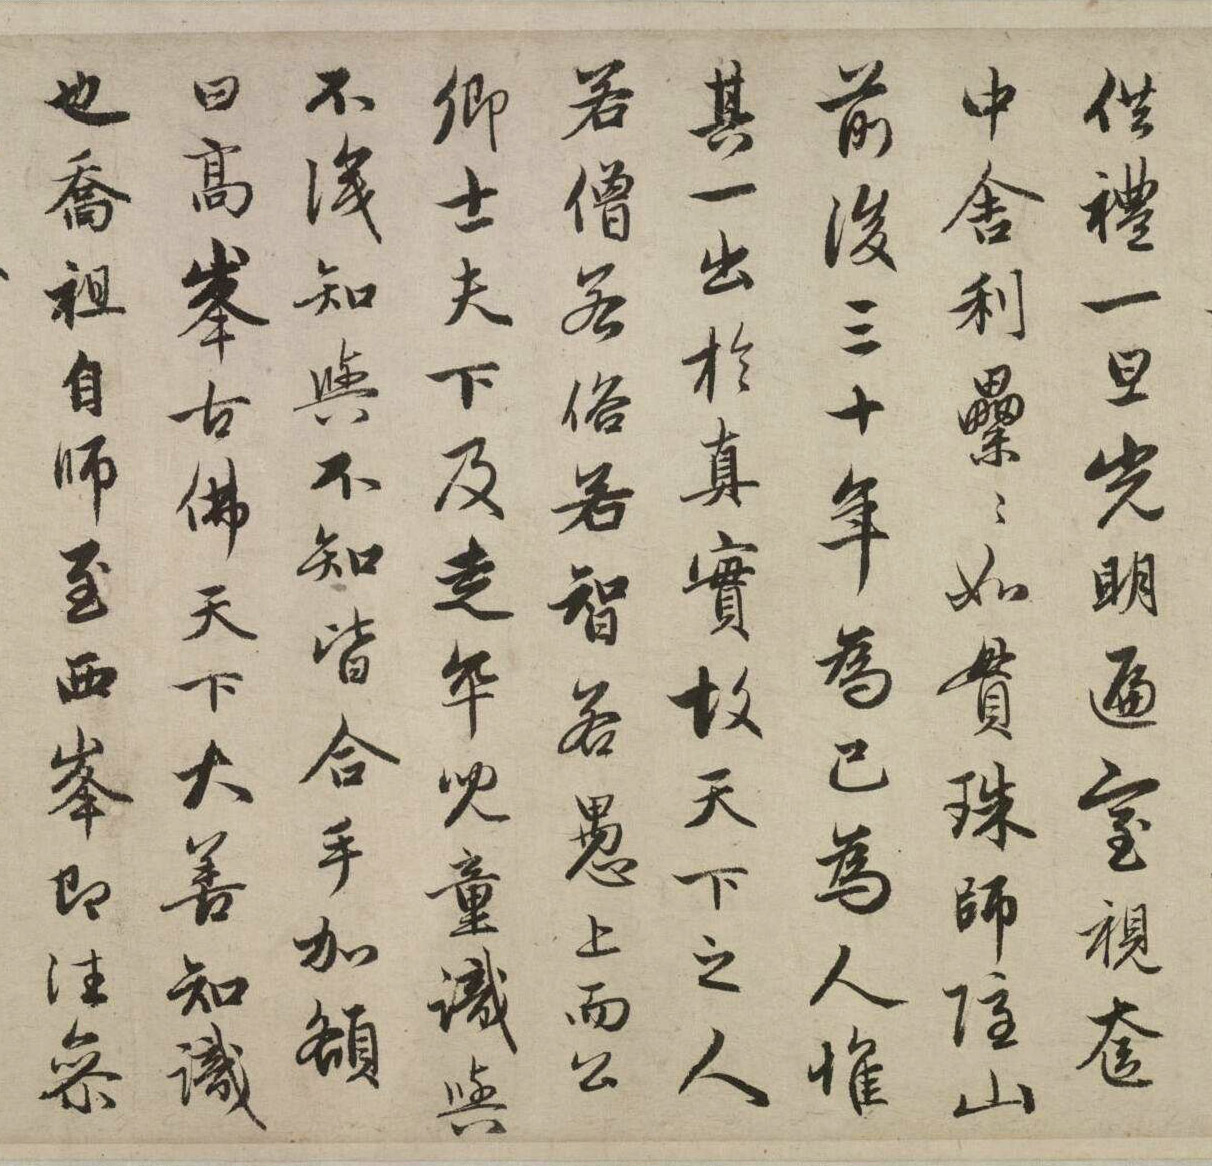 供禮一旦光明遍室視奩
中舍利纍〻如貫珠師隱山
前後三十年為己為人惟
其一出於真實故天下之人
若僧若俗若智若愚上而公
卿士夫下及走卒兒童識與
不識知與不知皆合手加額
曰高峯古佛天下大善知識
也喬祖自師至西峯即往參